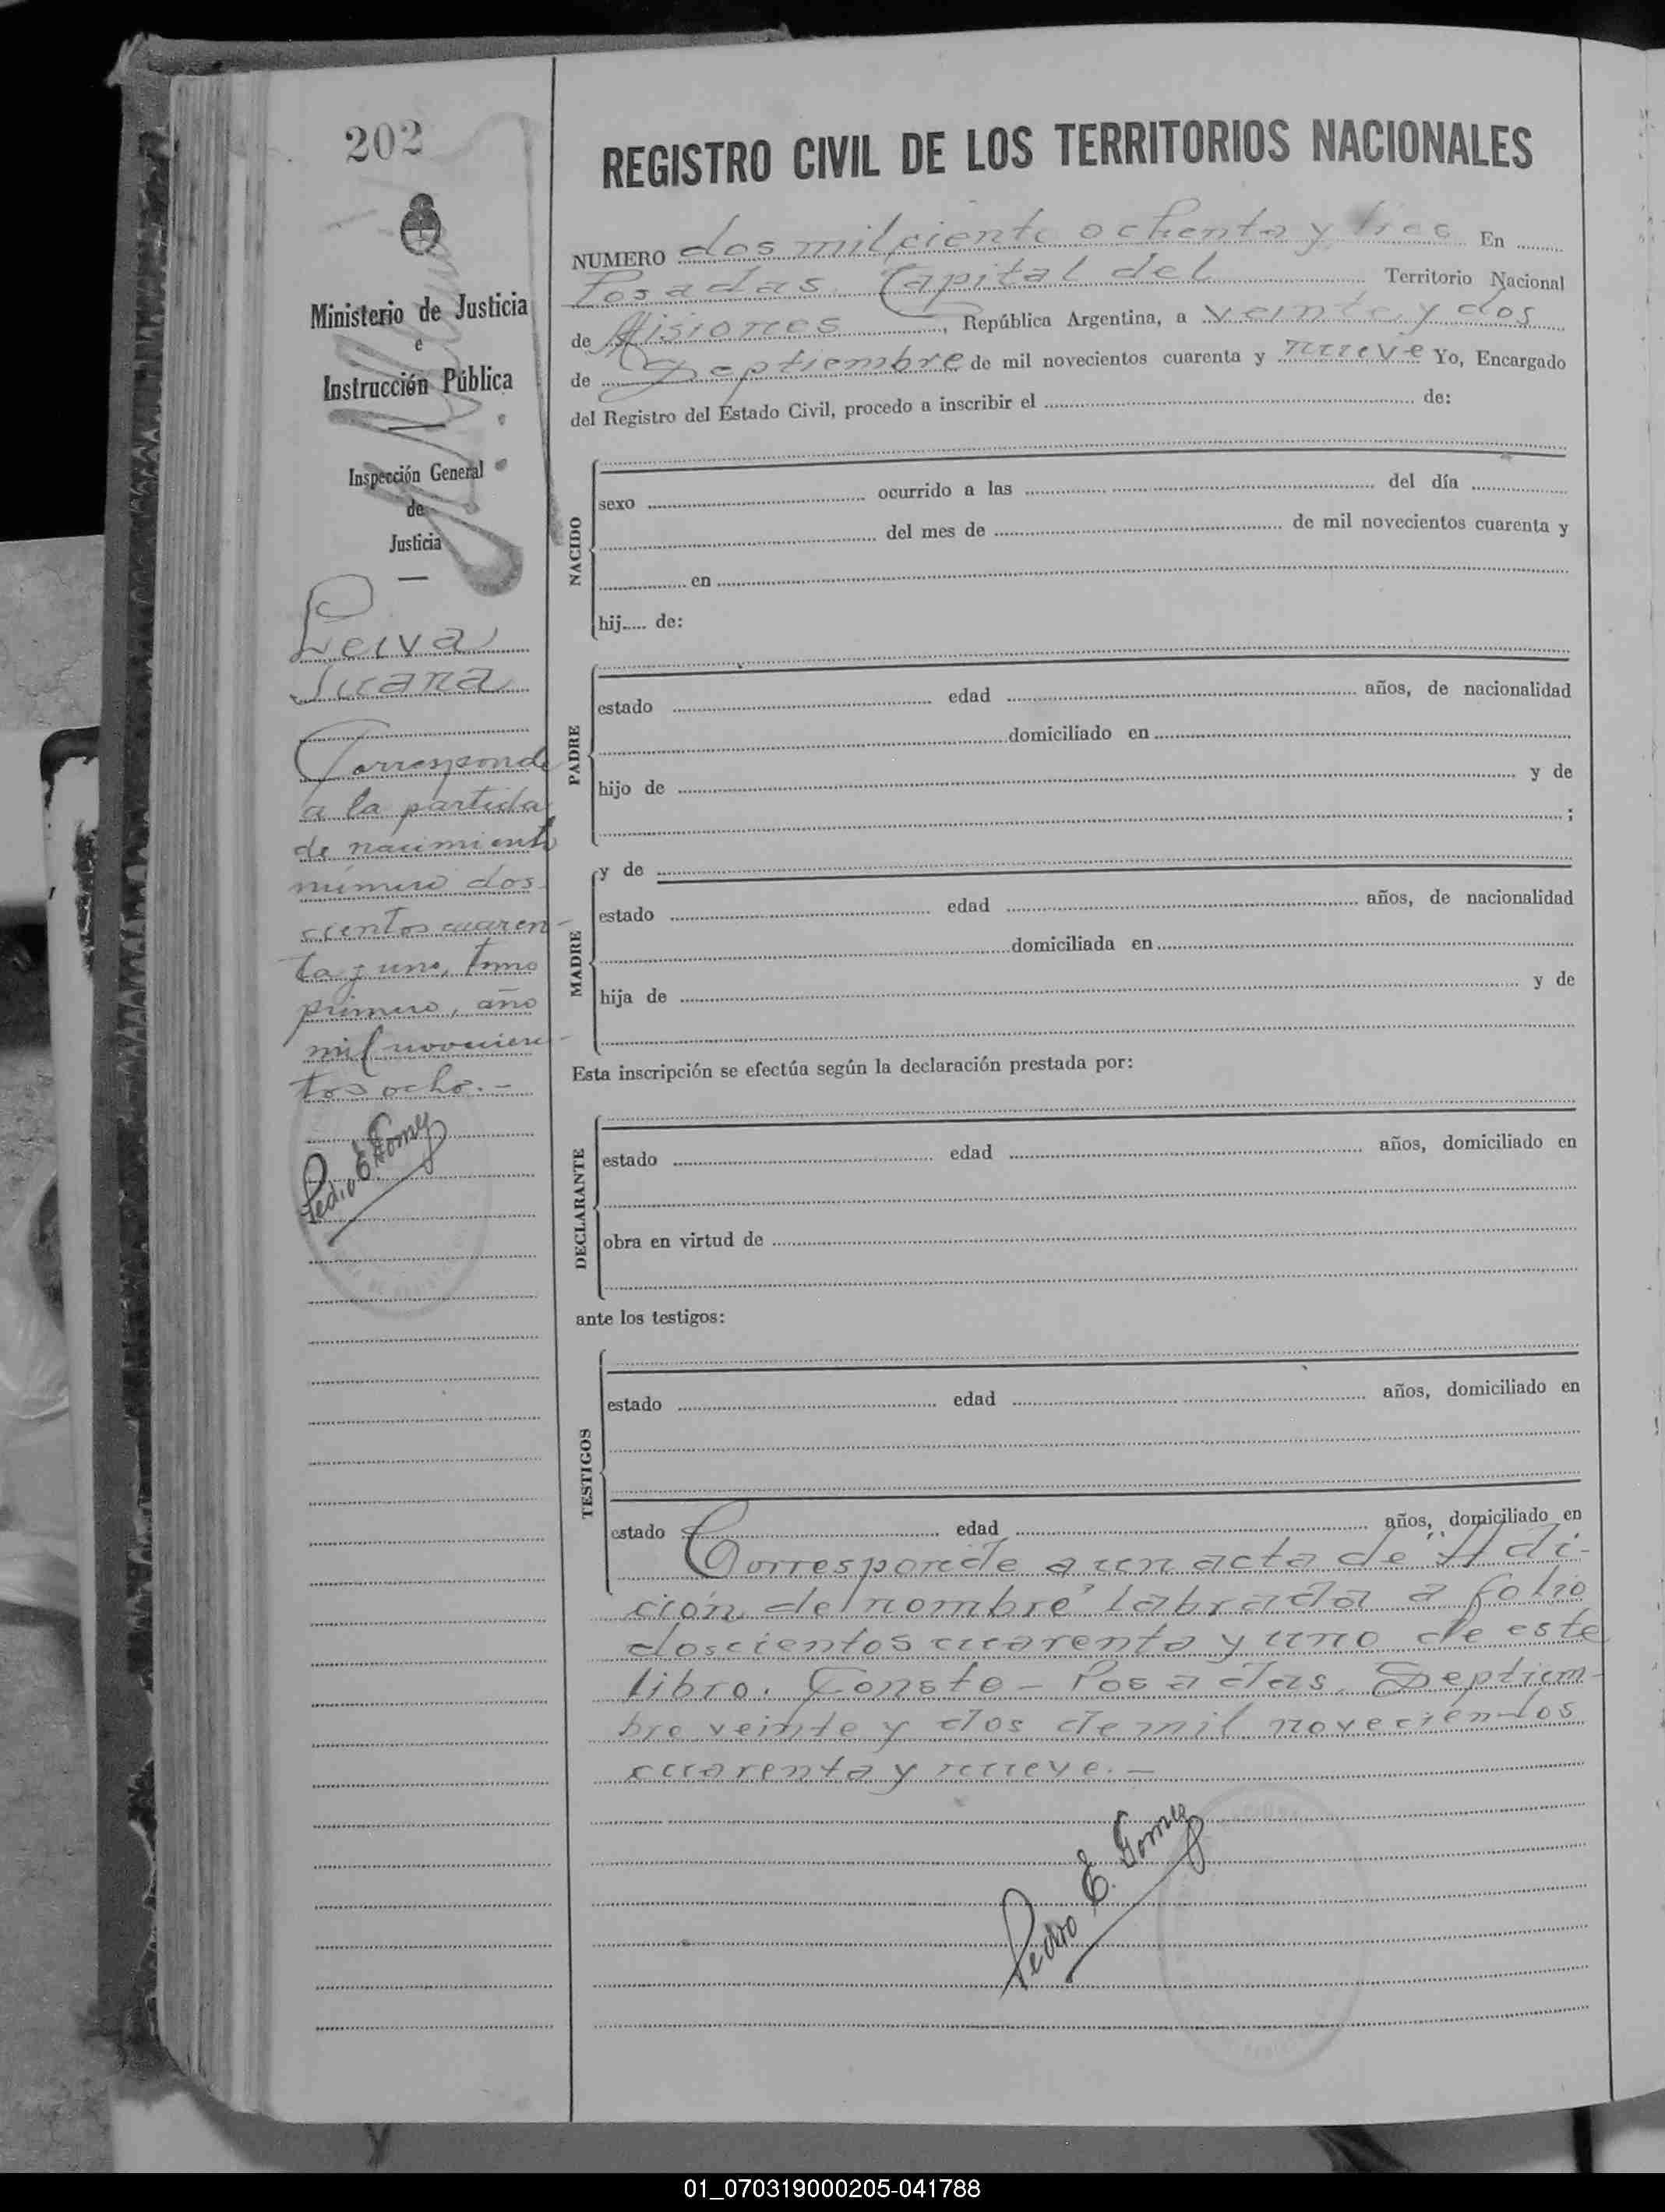 202
Ministerio de Justicia
e
Instrucción Pública
Inspección General
de
Justicia
Leiva
Juana
Corresponde
a la partida
de nacimiento
número dos
cientos cuaren-
ta y uno, tomo
primero, año
mil novecien-
tos ocho.-
Pedro E. Gomez
REGISTRO CIVIL DE LOS TERRITORIOS NACIONALES
NUMERO dos mil ciento ochenta y tres En
Posadas Capital del Territorio Nacional
de Misiones, República Argentina, a veinte y dos
de Septiembre de mil novecientos cuarenta y nueve Yo, Encargado
del Registro del Estado Civil, procedo a inscribir el de:
NACIDO
sexo ocurrido a las del día
del mes de de mil novecientos cuarenta y
en
hij de:
PADRE
estado edad años, de nacionalidad
domiciliado en
hijo de y de
;
MADRE
y de
estado edad años, de nacionalidad
domiciliada en
hija de y de
Esta inscripción se efectúa según la declaración prestada por:
DECLARANTE
estado edad años, domiciliado en
obra en virtud de
ante los testigos:
TESTIGOS
estado edad años, domiciliado en
estado edad años, domiciliado en
Corresponde a un acta de "Adi-
ción del nombre" labrada a folio
doscientos cuarenta y uno de este
libro. Conste - Posadas, Septiem-
bre veinte y dos de mil novecientos
cuarenta y nueve.-
Pedro E. Gomez
01_070319000205-041788